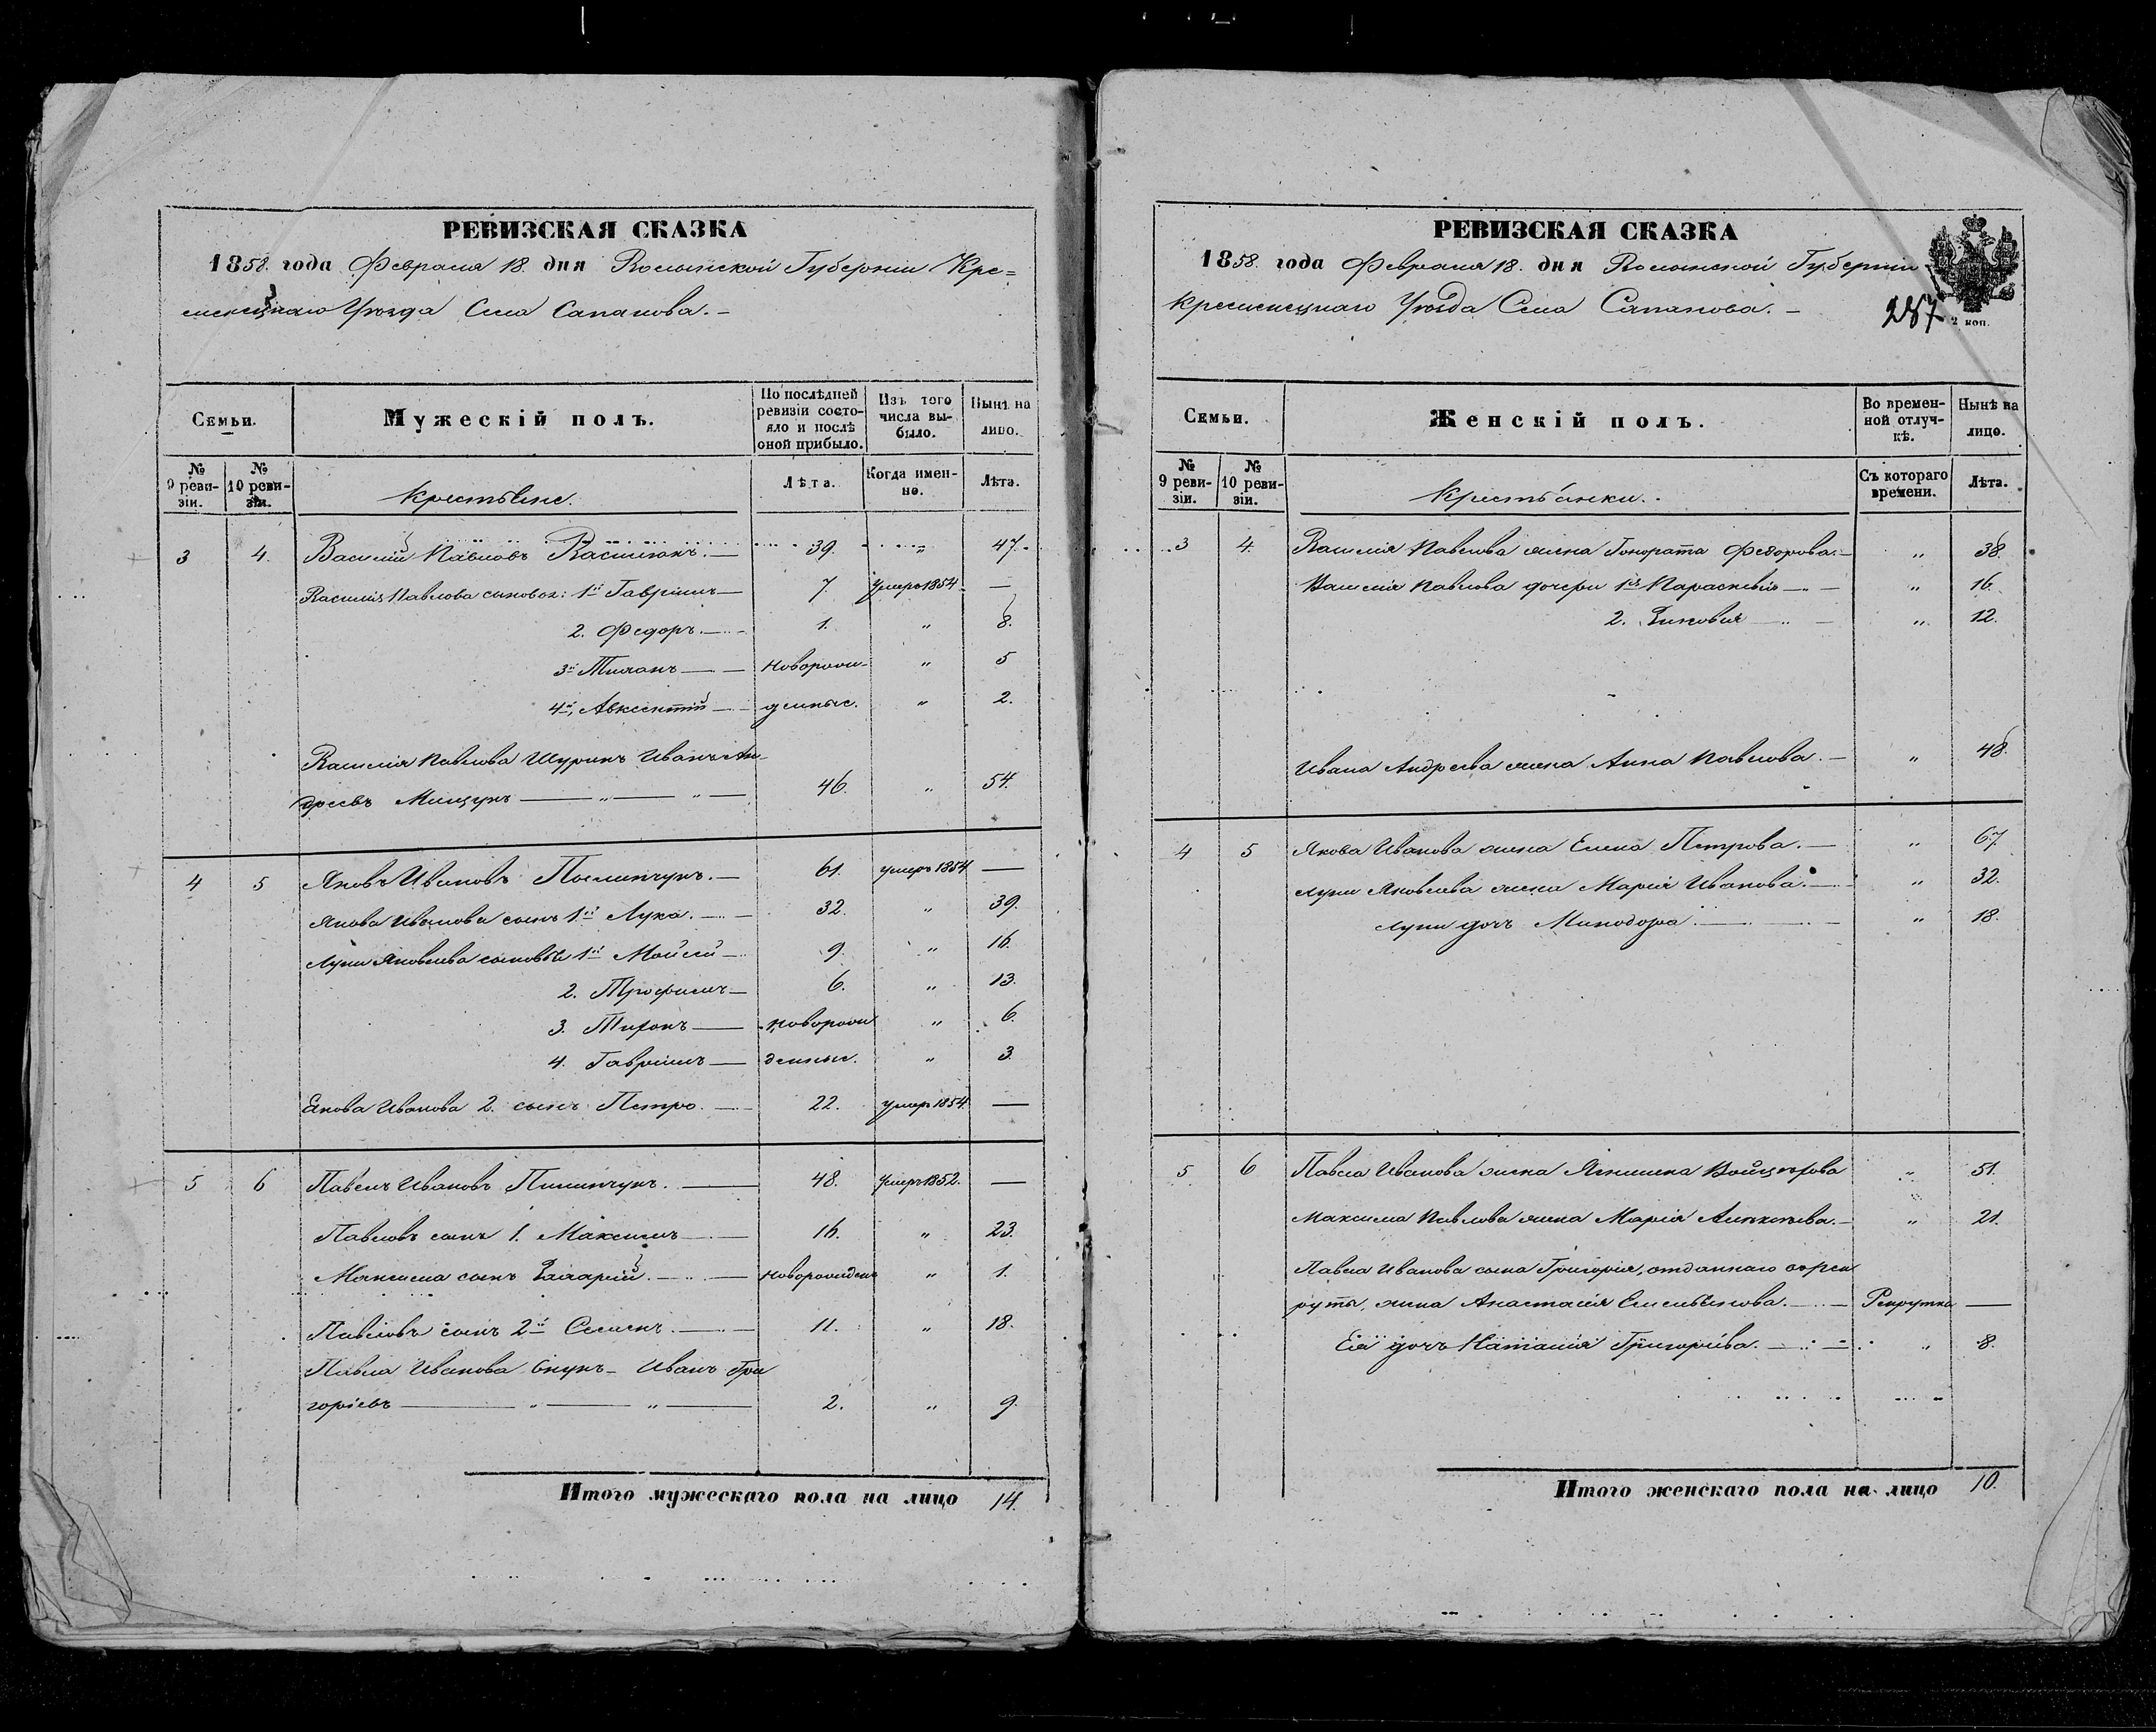 РЕВИЗСКАЯ СКАЗКА
1858. года Февраля 18. дня Волынской Губерніи Кре=
менецкаго Уѣзда Села Сапанова. –
Семьи.
Мужескій полъ.
По послѣдней ревизіи состояло и послѣ оной прибыло.
Изъ того числа выбыло.
Нынѣ на лицо.
№ 9 ревизіи.
№ 10 ревизіи.
Крестьяне.
Лѣта.
Когда именно.
Лѣта.
3 4. Василій Павловъ Василюкъ. — 39. „ 47.
Василія Павлова сыновья: 1й Гавріилъ — 7. Умеръ 1854. —
2. Федоръ. — 1. „ 8.
3й — Новорож- „ 5
4й, Авксентій — денные. „ 2.
Василія Павлова Шуринъ Иванъ Ан-
дреевъ — „ — „ — 46. „ 54.
4 5 Яковъ Ивановъ — 61. умеръ 1854 —
Якова Иванова сынъ 1й Лука. — 32. „ 39.
Луки Яковлева сыновья 1й Мойсей — 9. „ 16.
2. Трофимъ — 6. „ 13.
3. Тихонъ — новорож „ 6.
4. Гавріилъ — денные. „ 3.
Якова Иванова 2. сынъ Петро. — 22. умеръ 1854. —
5 6 Павелъ Ивановъ — 48. Умеръ 1852. —
Павловъ сынъ 1. Максимъ — 16. „ 23.
Максима сынъ Захарій. — новорожден „ 1.
Павловъ сынъ 2й Семенъ. — 11. „ 18.
Павла Иванова внукъ – Иванъ Гри
горіевъ — „ — „ — 2. „ 9.
Итого мужескаго пола на лицо 14.
РЕВИЗСКАЯ СКАЗКА
1858. года Февраля 18. дня Волынской Губерніи
Кременецкаго Уѣзда Села Сапанова. –
287
2 коп.
Семьи.
Женскій полъ.
Во временной отлучкѣ.
Нынѣ на лицо.
№ 9 ревизіи.
№ 10 ревизіи.
Крестьянки.
Съ котораго времени.
Лѣта.
3 4. Василія Павлова жена Гонората Федорова. — „ 38.
Василія Павлова дочери 1я Параскевія — „ 16.
2. Зиновія — „ 12.
Ивана Андреева жена Анна Павлова. — „ 48.
4 5 Якова Иванова жена Елена Петрова. — „ 67.
Луки Яковлева жена Марія Иванова. — „ 32.
Луки дочь Минодора — „ 18.
5 6 Павла Иванова жена Войцѣхова „ 51.
Максима Павлова жена Марія — „ 21.
Павла Иванова сына Григорія, отданнаго в рек
руты, жена Анастасія Емельянова. — Рекрутка —
Ея дочь Наталія Григоріева. — „ 8.
Итого женскаго пола на лицо 10.